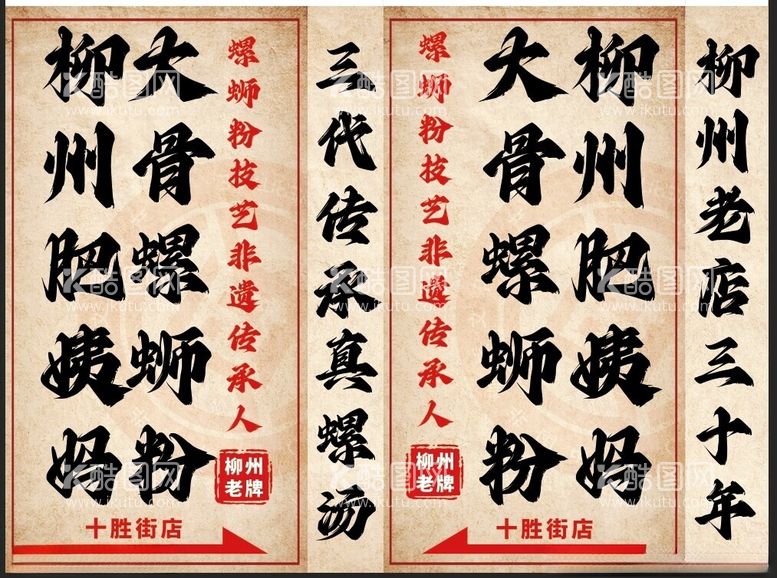 柳州肥姨妈
大骨螺蛳粉
螺蛳粉技艺非遗传承人
柳州
老牌
十胜街店
三代传承真螺汤
螺蛳粉技艺非遗传承人
柳州
老牌
大骨螺蛳粉
柳州肥姨妈
十胜街店
柳州老店三十年